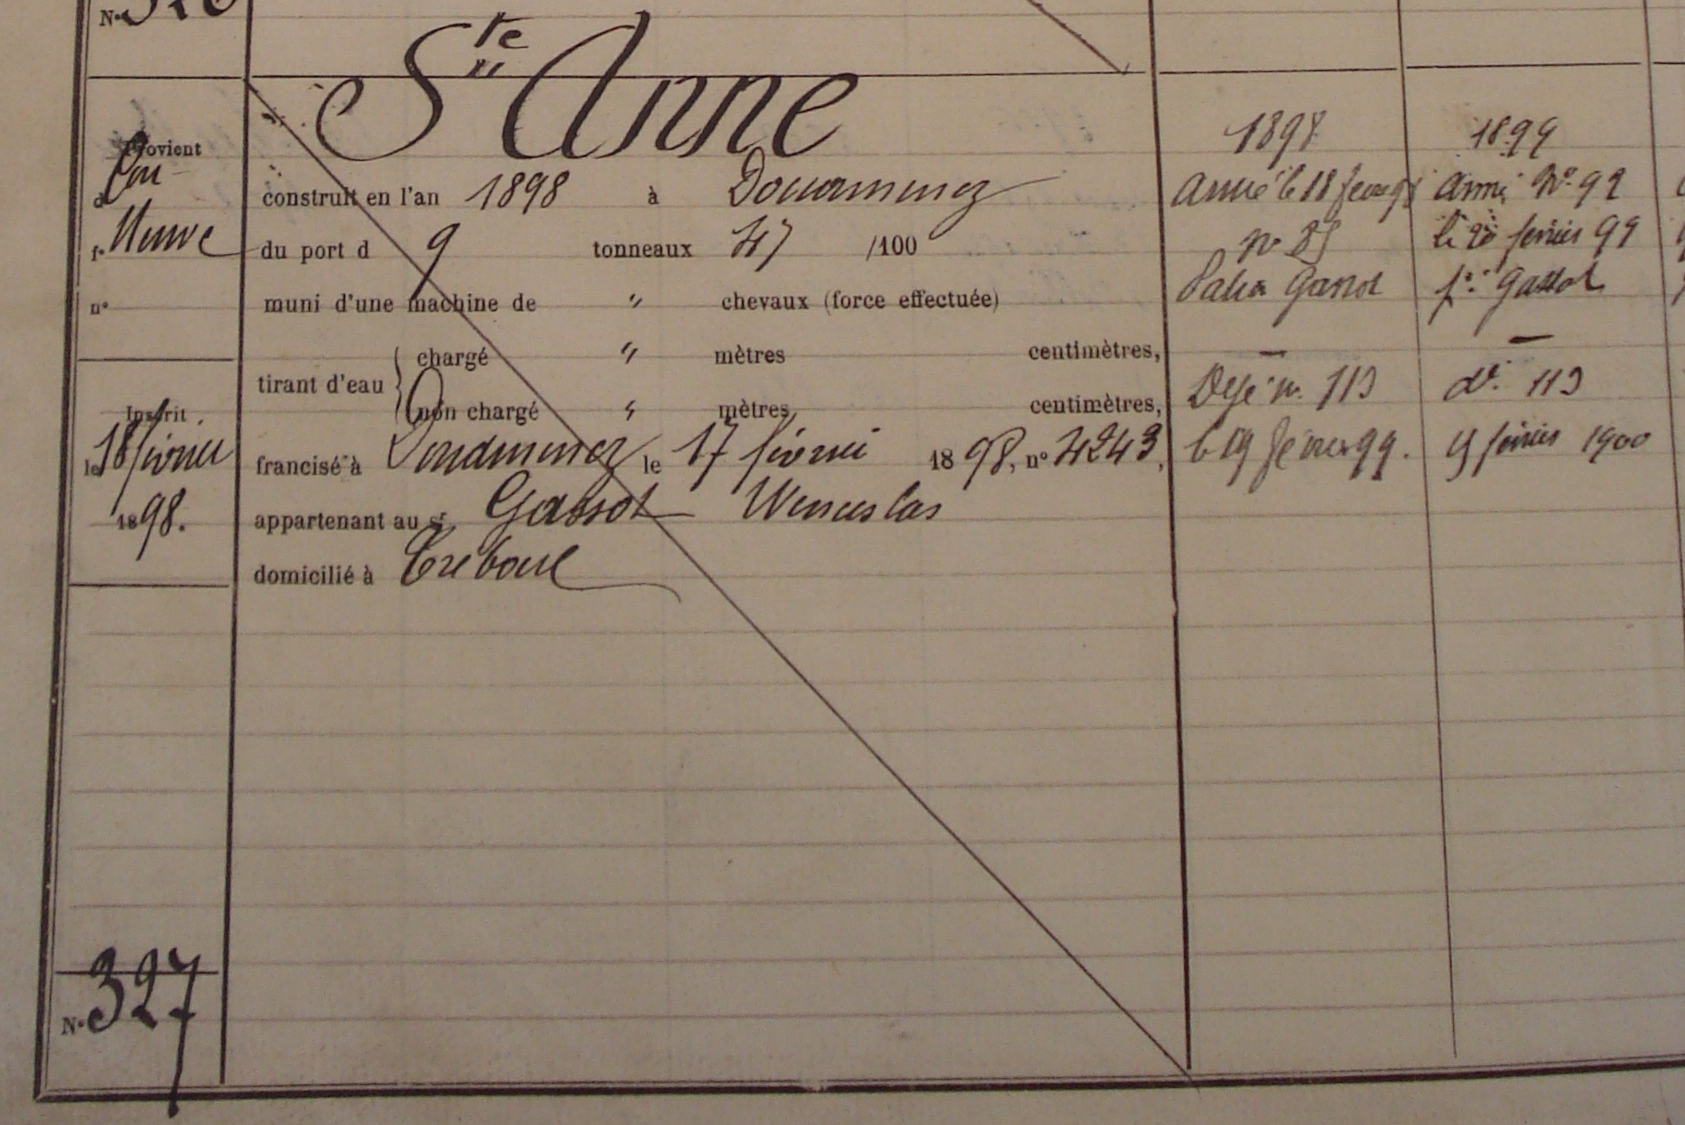 N° 326
Ste Anne
Provient
d
Con
f. Neuve
n°
Inscrit
le 18 février
1898.
construit en l'an 1898 à Douarnenez
du port d 9 tonneaux 47 /100
muni d'une machine de " chevaux (force effectuée)
tirant d'eau
chargé " mètres centimètres,
non chargé " mètres centimètres,
francisé à Douarnenez le 17 février 1898, n° 4243,
appartenant au sr Gassot Wenceslas
domicilié à Tréboul
1898
armé le 18 février 98
n° 85
Gassot
Désé n. 113
le 19 février 99.
1899
armé N° 92
le 20 février 99
pn. Gassot
do. 113
9 février 1900
N° 327